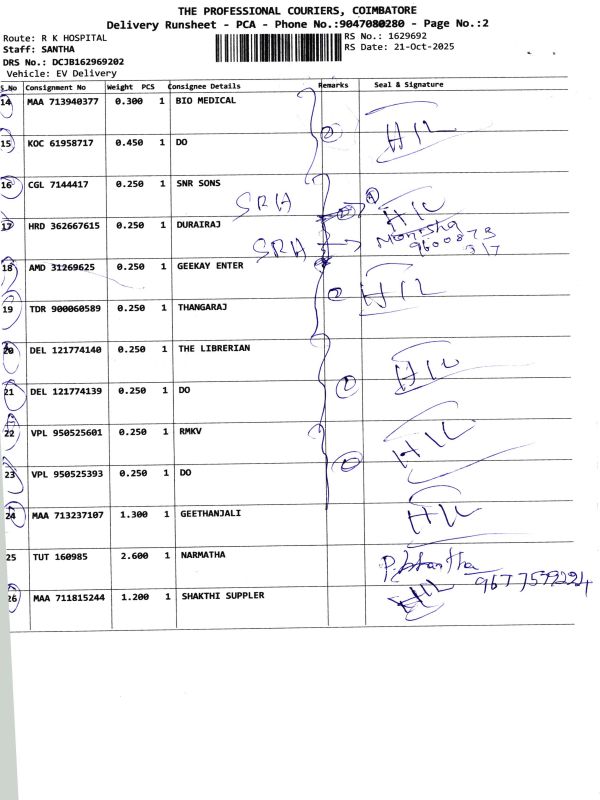 THE PROFESSIONAL COURIERS, COIMBATORE
Delivery Runsheet - PCA - Phone No.:9047080280 - Page No.:2
Route: R K HOSPITAL
RS No.: 1629692
Staff: SANTHA
RS Date: 21-Oct-2025
DRS No.: DCJB162969202
Vehicle: EV Delivery
S.No Consignment No Weight PCS Consignee Details Remarks Seal & Signature
14 MAA 713940377 0.300 1 BIO MEDICAL
15 KOC 61958717 0.450 1 DO
16 CGL 7144417 0.250 1 SNR SONS
SRH
17 HRD 362667615 0.250 1 DURAIRAJ
Monisha
9600873
317
SRH
18 AMD 31269625 0.250 1 GEEKAY ENTER
19 TDR 900060589 0.250 1 THANGARAJ
20 DEL 121774140 0.250 1 THE LIBRERIAN
21 DEL 121774139 0.250 1 DO
22 VPL 950525601 0.250 1 RMKV
23 VPL 950525393 0.250 1 DO
24 MAA 713237107 1.300 1 GEETHANJALI
25 TUT 160985 2.600 1 NARMATHA
26 MAA 711815244 1.200 1 SHAKTHI SUPPLER